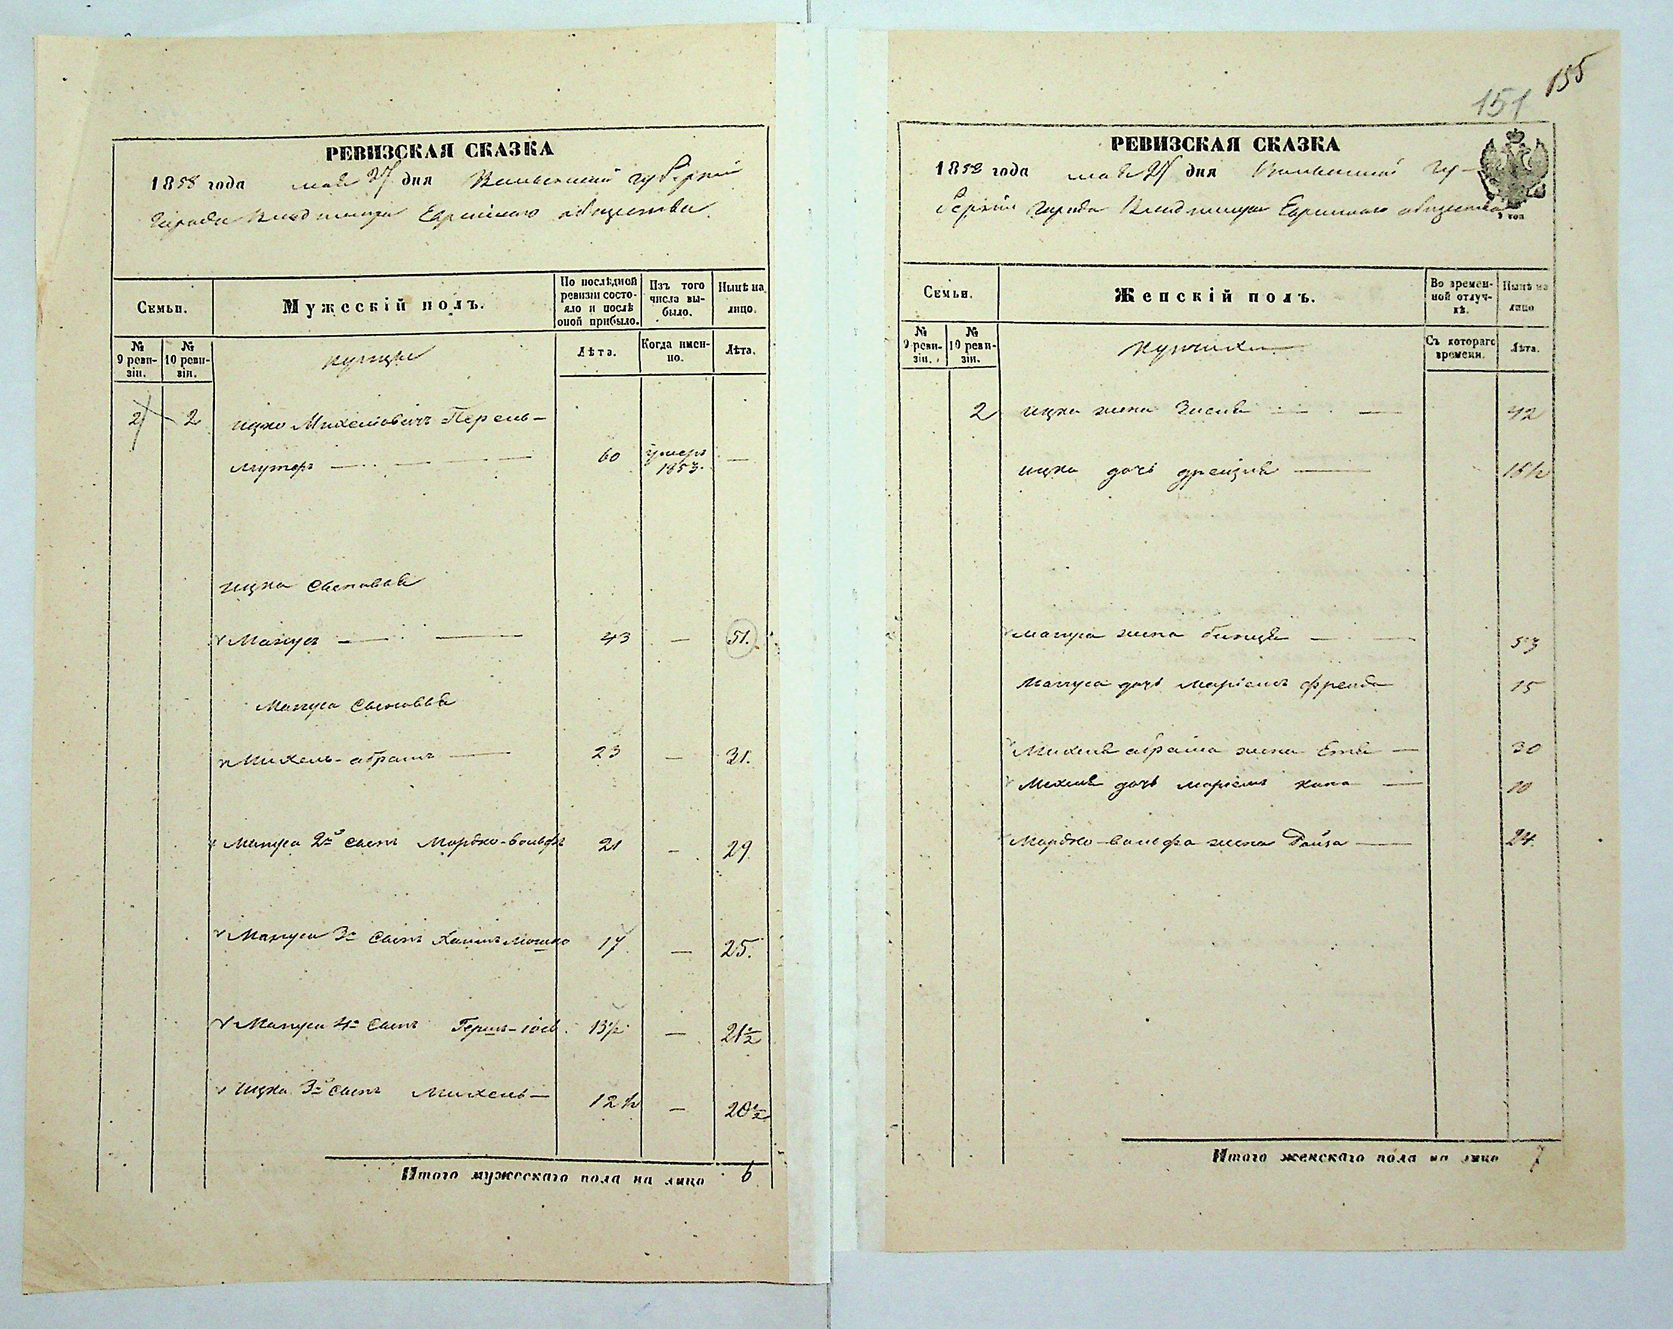 155
151
РЕВИЗСКАЯ СКАЗКА
1858 года мая 27 дня Волынской губернии
города Владимира Еврейского общества.
Семьи.
Мужескій полъ.
По послѣдней ревизіи состояло и послѣ оной прибыло.
Изъ того числа выбыло.
Нынѣ на лицо.
№ 9 ревизіи.
№ 10 ревизіи.
купцы
Лѣта.
Когда именно.
Лѣта.
2 2 Ицко Михелiовичъ Перель-
мутеръ 60 умеръ 1853. —
Ицка сыновья
Манусъ 43 — 51.
Мануса сыновья
Михель-абрамъ 23 — 31.
Мануса 2й сынъ Мордко-вольфъ 21 — 29.
Мануса 3й сынъ Хаимъ мошко 17 — 25.
Мануса 4й сынъ Гершъ-іось 13½ — 21½
Ицка 3й сынъ Михель 12½ — 20½
Итого мужескаго пола на лицо 6
РЕВИЗСКАЯ СКАЗКА
1858 года мая 27 дня Волынской гу-
берніи города Владимира Еврейского общества
Семьи.
Женскій полъ.
Во временной отлучкѣ.
Нынѣ на лицо
№ 9 ревизіи.
№ 10 ревизіи.
Съ котораго времени.
Лѣта.
2 Ицка жена 42
Ицка дочь 15½
Мануса жена 53
Мануса дочь маріемъ фрейда 15
Михеля абрама жена Етя 30
Михеля дочь маріемъ хана 10
Мордко-вольфа жена Ройза 24.
Итого женскаго пола на лицо 7